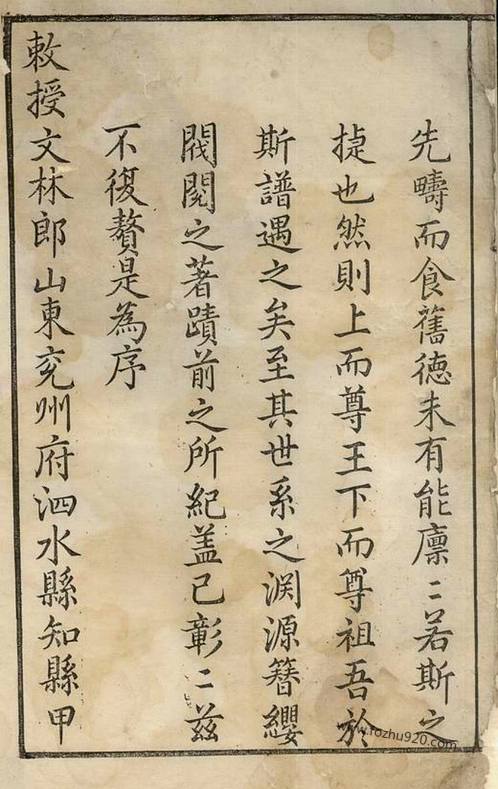 先疇而食舊德未有能廩〻若斯之
㨗也然則上而尊王下而尊祖吾於
斯譜遇之矣至其世系之渊源簪纓
閥閱之著蹟前之所紀盖已彰〻兹
不復贅是為序
敕授文林郎山東兖州府泗水縣知縣甲
www.fozhu920.com